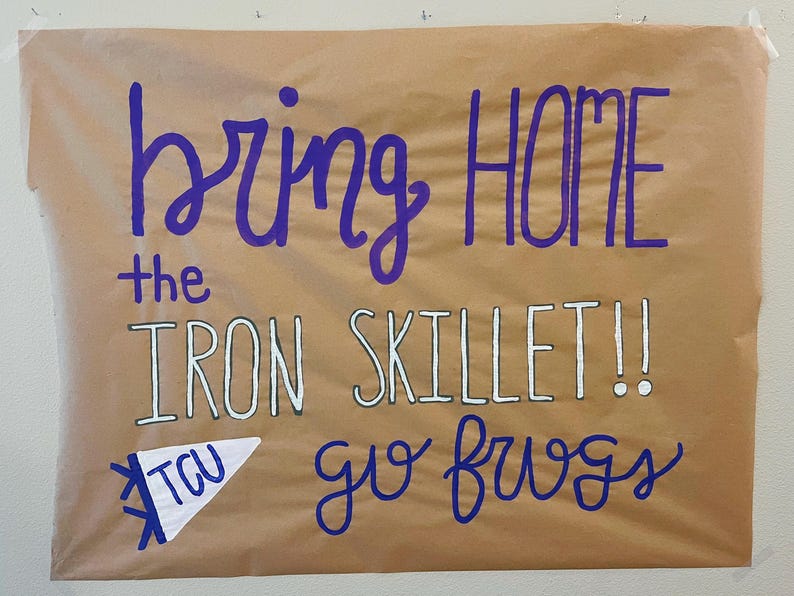 bring HOME
the
IRON SKILLET!!
TCU
go frogs